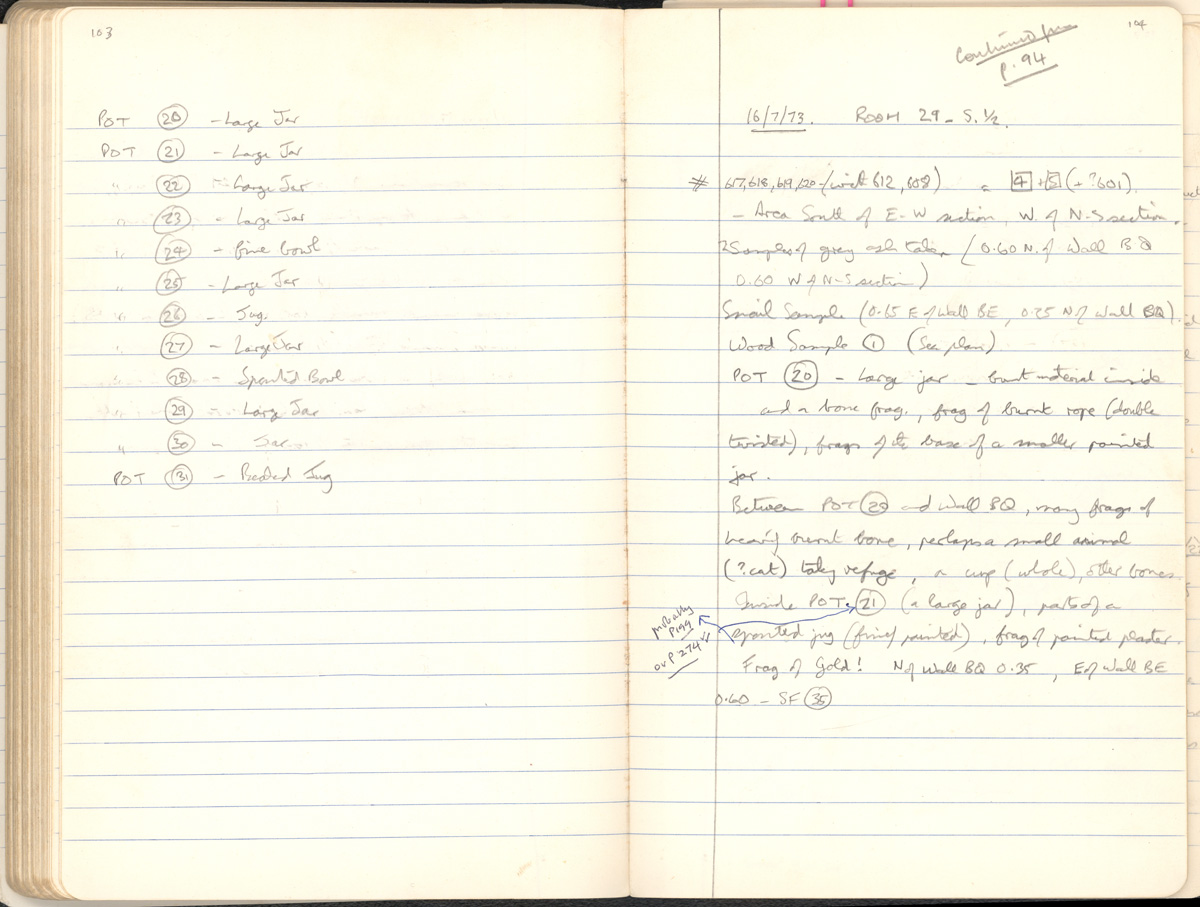 103
POT 20 - Large Jar
POT 21 - Large Jar
" 22 - Large Jar
" 23 - Large Jar
" 24 - fine bowl
" 25 - Large Jar
" 26 - Jug.
" 27 - Large Jar
28 - Spouted Bowl
29 - Large Jar
" 30 - Jar
POT 31 - Beaded Jug
104
Continued from
p. 94
16/7/73. ROOM 29 - S. 1/2.
# 617, 618, 619, 120 - (with 612, 608) = 4 + 5 (+ ?601).
- Area South of E-W section, W. of N-S section.
2 Samples of grey ash taken (0.60 N. of Wall B
0.60 W of N-S section)
Snail Sample (0.65 E of Wall BE, 0.25 N of Wall BQ).
Wood Sample 1 (See plan)
POT 20 - Large jar - burnt material inside
and a bone frag., frag of burnt rope (double
twisted), frags of the base of a smaller painted
jar.
Between POT 20 and Wall BQ, many frags of
heavily burnt bone, perhaps a small animal
(?cat) taking refuge, a cup (whole), other bones.
Inside POT 21 (a large jar), parts of a
spouted jug (finely painted), frag of painted plaster.
probably
P199
or P.274
Frag of Gold! N of Wall BQ 0.35, E of Wall BE
0.60 - SF 35